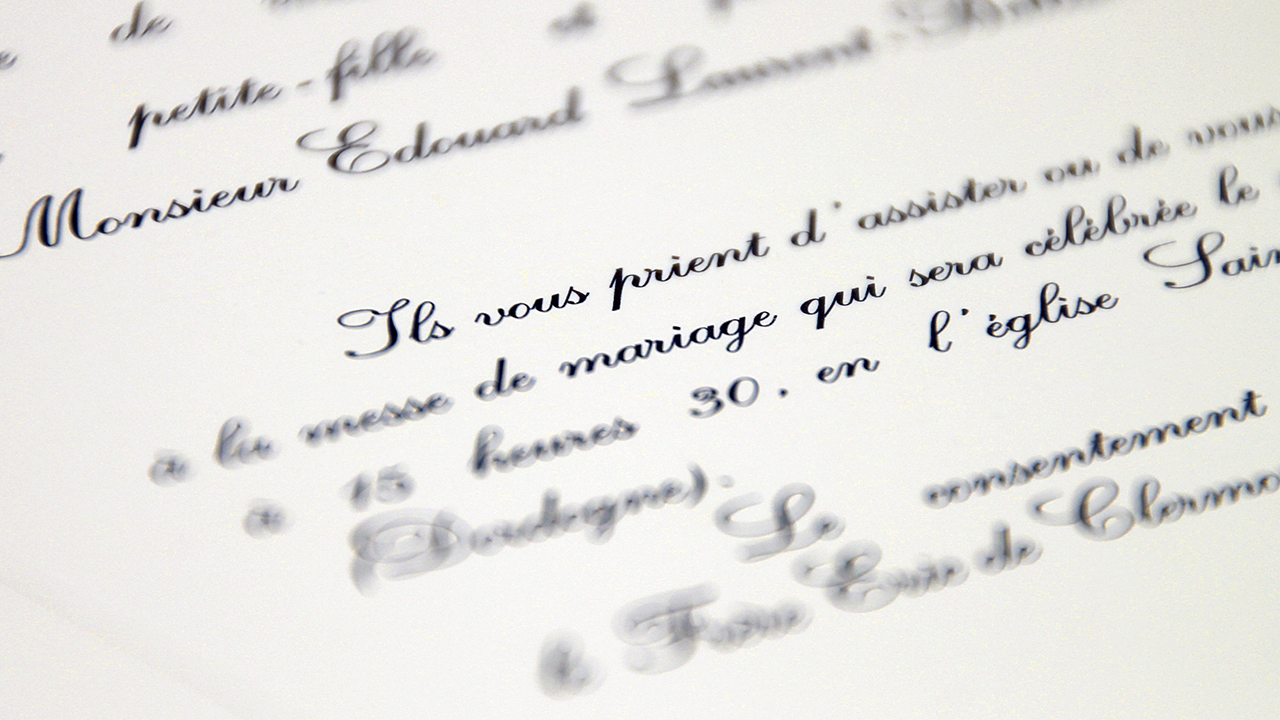 de
petite-fille et
Monsieur Edouard Laurent-
Ils vous prient d'assister ou de vous
à la messe de mariage qui sera célébrée le
à 15 heures 30, en l'église
(Dordogne).
Le consentement
Eric de